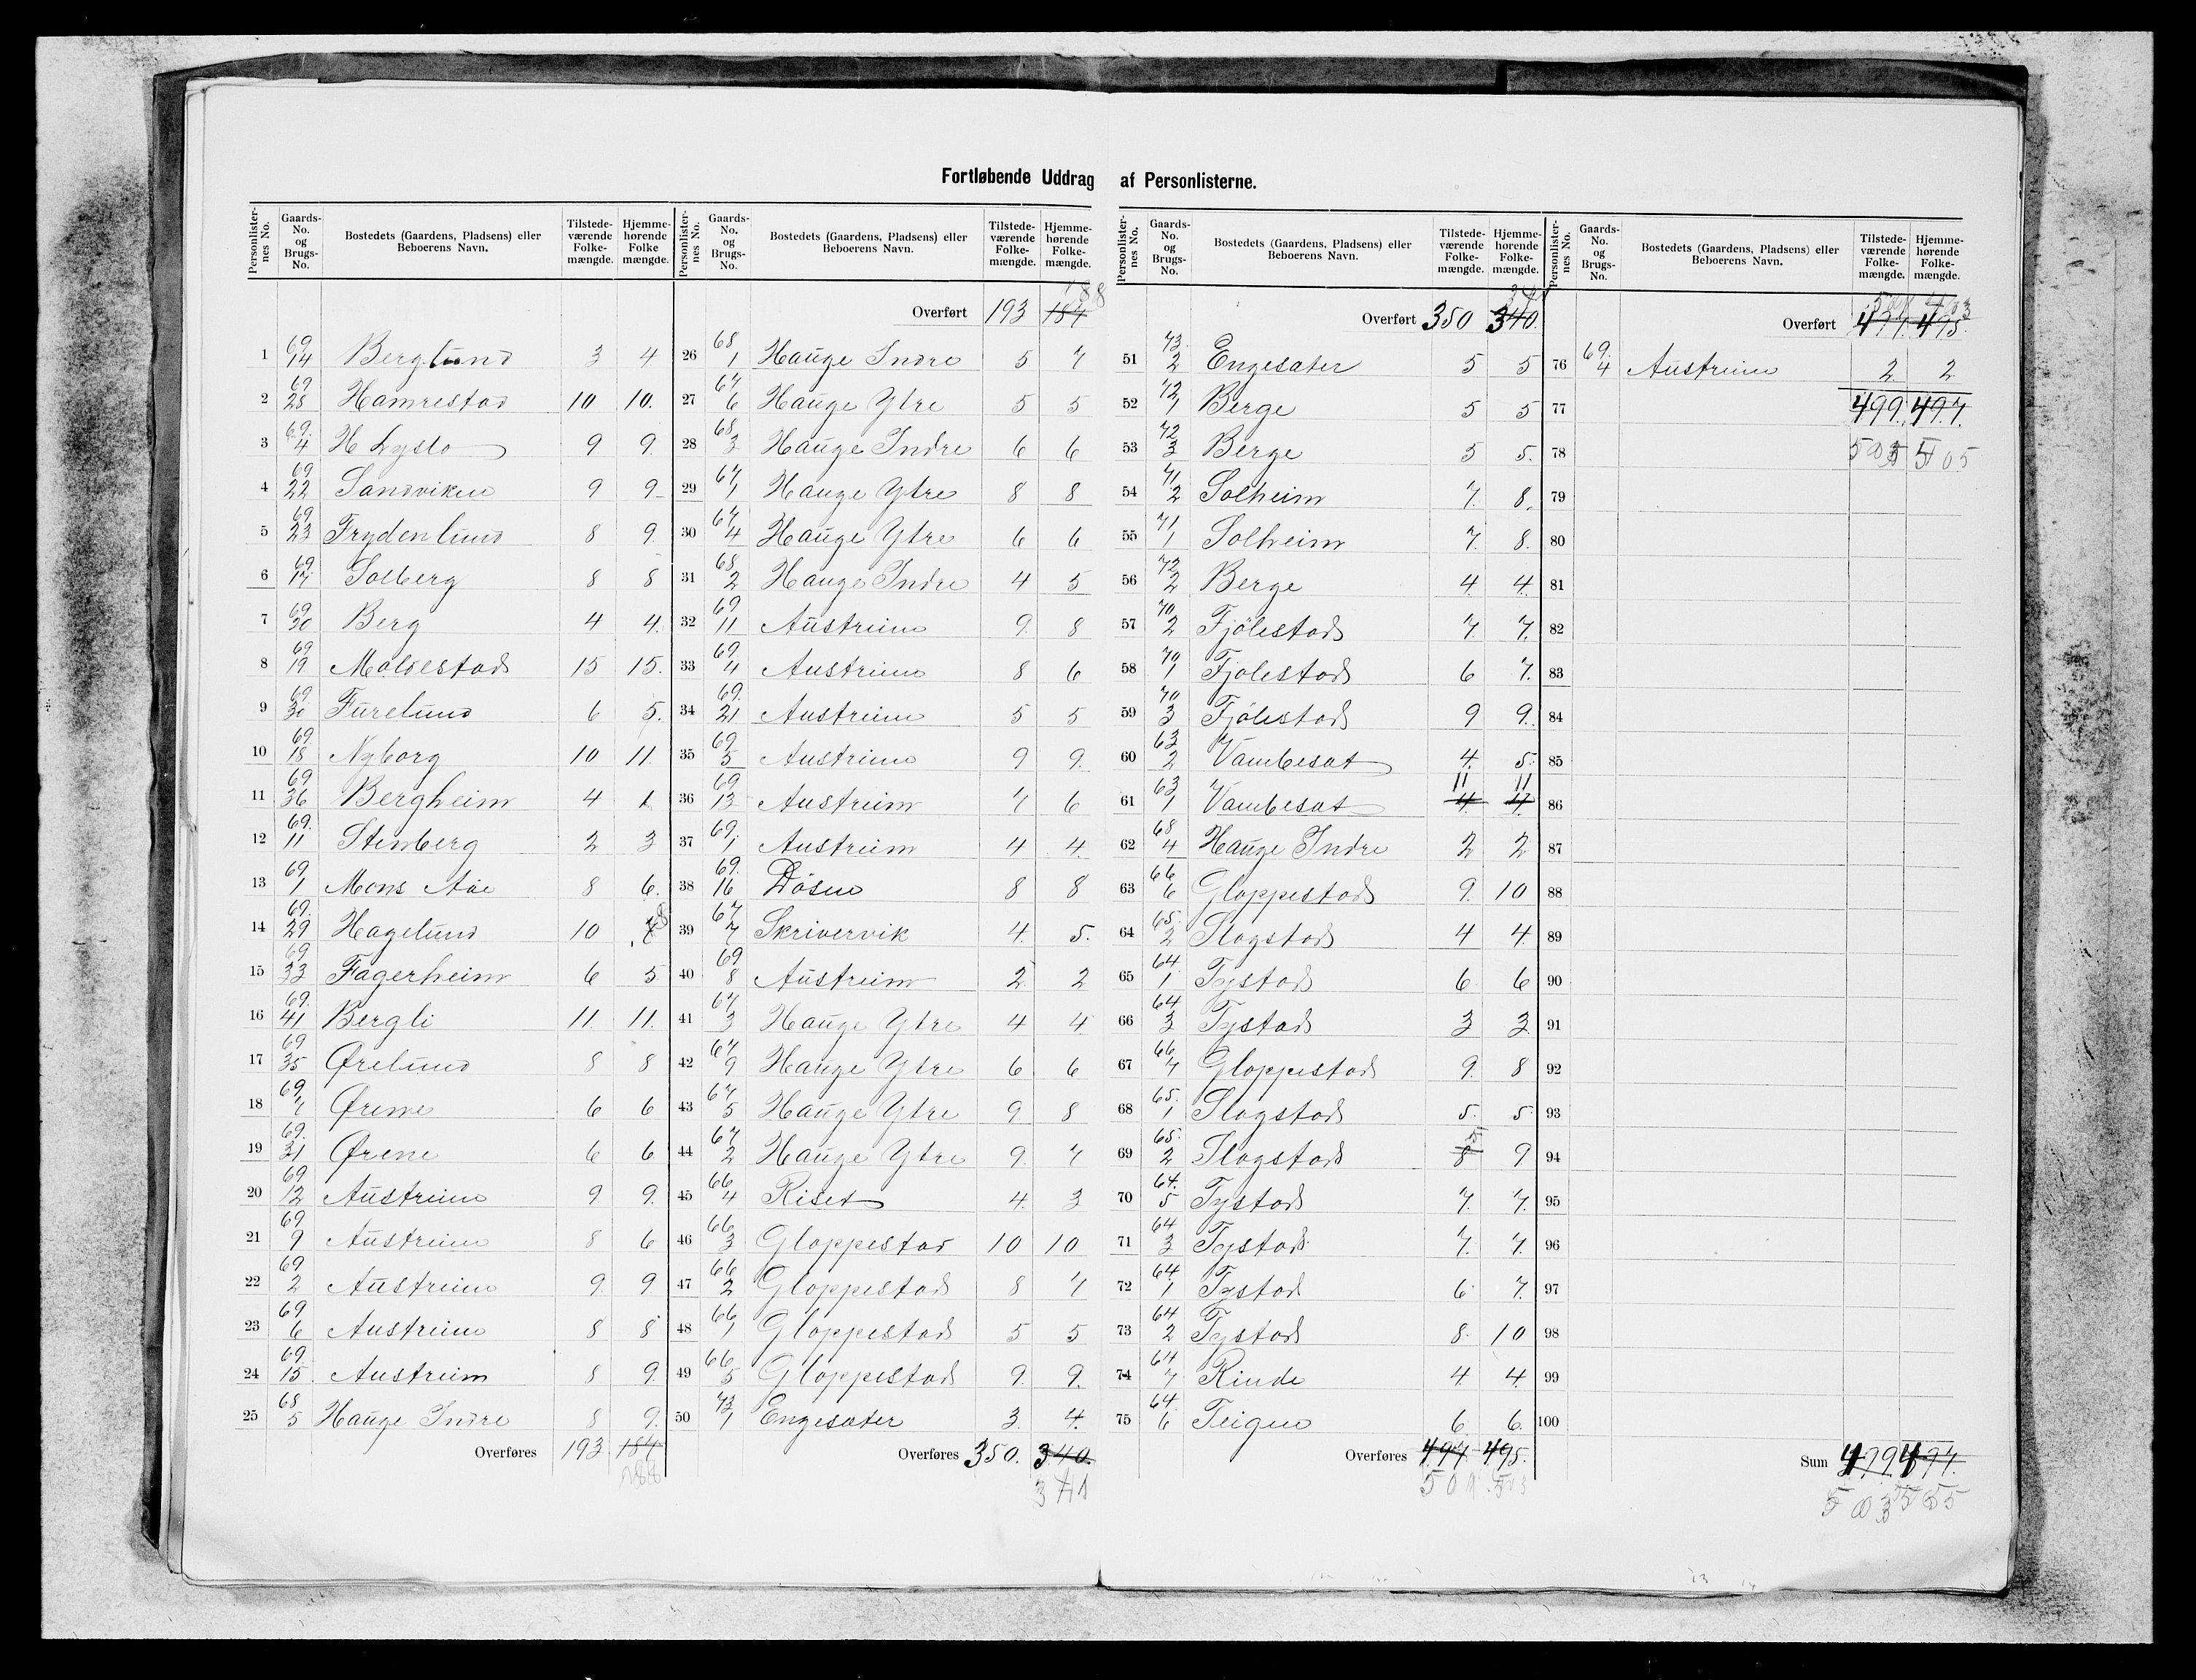 Fortløbende Uddrag af Personlisterne.
Personlister-nes No. Gaards-No. og Brugs-No. Bostedets (Gaardens, Pladsens) eller Beboerens Navn. Tilstede-værende Folke-mængde. Hjemme-hørende Folke mængde.
1 69. 14 Berglund 3 4
2 69 28 Hamrestad 10 10.
3 69. 4 H Lyslo 9 9
4 69 22 Sandviken 9 9
5 69 23 Frydenlund 8 9
6 69. 17 Solberg 8 8
7 69 20 Berg 4 4.
8 69 19 Moldestad 15 15.
9 69 30 Furelund 6 5.
10 69. 18 Nyborg 10 11.
11 69 36 Bergheim 4 1
12 69. 11 Stenberg 2 3
13 69 1 Mons Aae 8 6.
14 69. 29 Hagelund 10 8
15 69 33 Fagerheim 6 5
16 69. 41 Bergli 11. 11.
17 69 35 Ørelund 8 8
18 69. 7 Ørene 6 6
19 69. 31 Ørene 6 6
20 69 12 Austreim 9 9.
21 69 9 Austreim 8 6
22 69 2 Austreim 9 9
23 69 6 Austreim 8 8
24 69. 15 Austreim 8 9
25 68 5 Hauge Indre 8 9.
Overføres 193 184
188
Personlister-nes No. Gaards-No. og Brugs-No. Bostedets (Gaardens, Pladsens) eller Beboerens Navn. Tilstede-værende Folke-mængde. Hjemme-hørende Folke-mængde.
188
Overført 193 184
26 68 1 Hauge Indre 5 7
27 67 6 Hauge Ytre 5 5
28 68 3 Hauge Indre 6 6
29 67 1 Hauge Ytre 8 8
30 67 4 Hauge Ytre 6 6
31 68 2 Hauge Indre 4 5
32 69 11 Austreim 9. 8
33 69. 4 Austreim 8 6
34 69. 21 Austreim 5 5
35 69. 5 Austreim 9 9.
36 69 13 Austreim 7 6
37 69. 1 Austreim 4 4.
38 69. 16 Døsen 8 8
39 67 7 Skrivervik 4. 5.
40 69 8 Austreim 2. 2
41 67 3 Hauge Ytre 4 4
42 67 9 Hauge Ytre 6 6
43 67 5 Hauge Ytre 9 8
44 67 2 Hauge Ytre 9. 7
45 66 4 Riset 4. 3
46 66 3 Gloppestad 10 10
47 66 2 Gloppestad 8 7
48 66 1 Gloppestad 5 5
49 66 5 Gloppestad 9. 9.
50 73 1 Engesæter 3. 4.
Overføres 350. 340.
Personlister-nes No. Gaards-No. og Brugs-No. Bostedets (Gaardens, Pladsens) eller Beboerens Navn. Tilstede-værende Folke-mængde. Hjemme-hørende Folke-mængde.
Overført 350 340.
51 73. 2 Engesæter 5 5
52 72 1 Berge 5 5
53 72 3 Berge 5 5.
54 71 2 Solheim 7. 8.
55 71 1 Solheim 7. 8.
56 72 2 Berge 4. 4.
57 70 2 Fjölestad 7. 7.
58 70 1 Fjølestad 6 7.
59 70 3 Fjölestad 9 9.
60 63 2 Vambesæt 4. 5.
11 11
61 63 1 Vambesæt 4. 4.
62 68 4 Hauge Indre 2 2
63 66 6 Gloppestad 9. 10
64 65. 2 Slagstad 4 4.
65 64. 1 Tystad 6 6
66 64 3 Tystad 3 3
67 66 7 Gloppestad 9. 8
68 65. 1 Slagstad 5. 5.
69 65. 2 Slagstad 8 9
70 64. 5 Tystad 7. 7.
71 64 3 Tystad 7. 7.
72 64. 1 Tystad 6 7.
73 64 2 Tystad 8. 10
74 64 7 Rinde 4. 4.
75 64. 6 Teigen 6. 6.
Overføres 497. 495.
503
Personlister-nes No. Gaards-No. og Brugs-No. Bostedets (Gaardens, Pladsens) eller Beboerens Navn. Tilstede-værende Folke-mængde. Hjemme-hørende Folke-mængde.
Overført 497. 495.
76 69. 4 Austreim 2. 2
77 499. 497.
78 505
79
80
81
82
83
84
85
86
87
88
89
90
91
92
93
94
95
96
97
98
99
100
Sum 499 497.
503 505